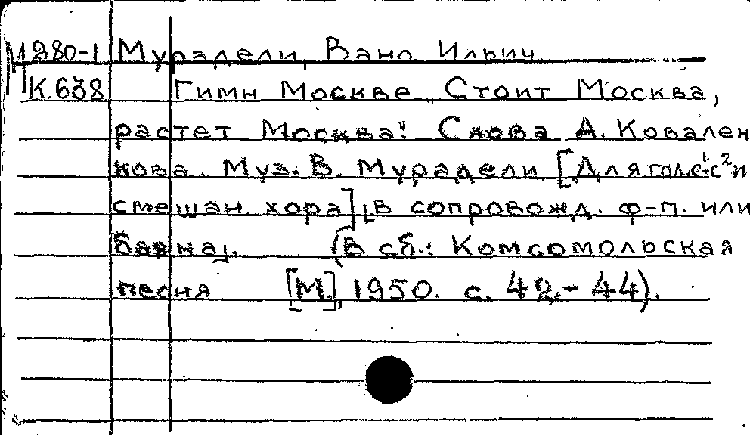 М280-1 Мурадели, Вано Ильич
К.638 Гимн Москве. Стоит Москва,
растет Москва! Слова А. Ковален
кова. Муз. В. Мурадели [Для гол. с
смешан. хора] [в сопровожд. ф-п. или
баяна]. (В сб.: Комсомольская
песня [М.], 1950. с. 42.-44).